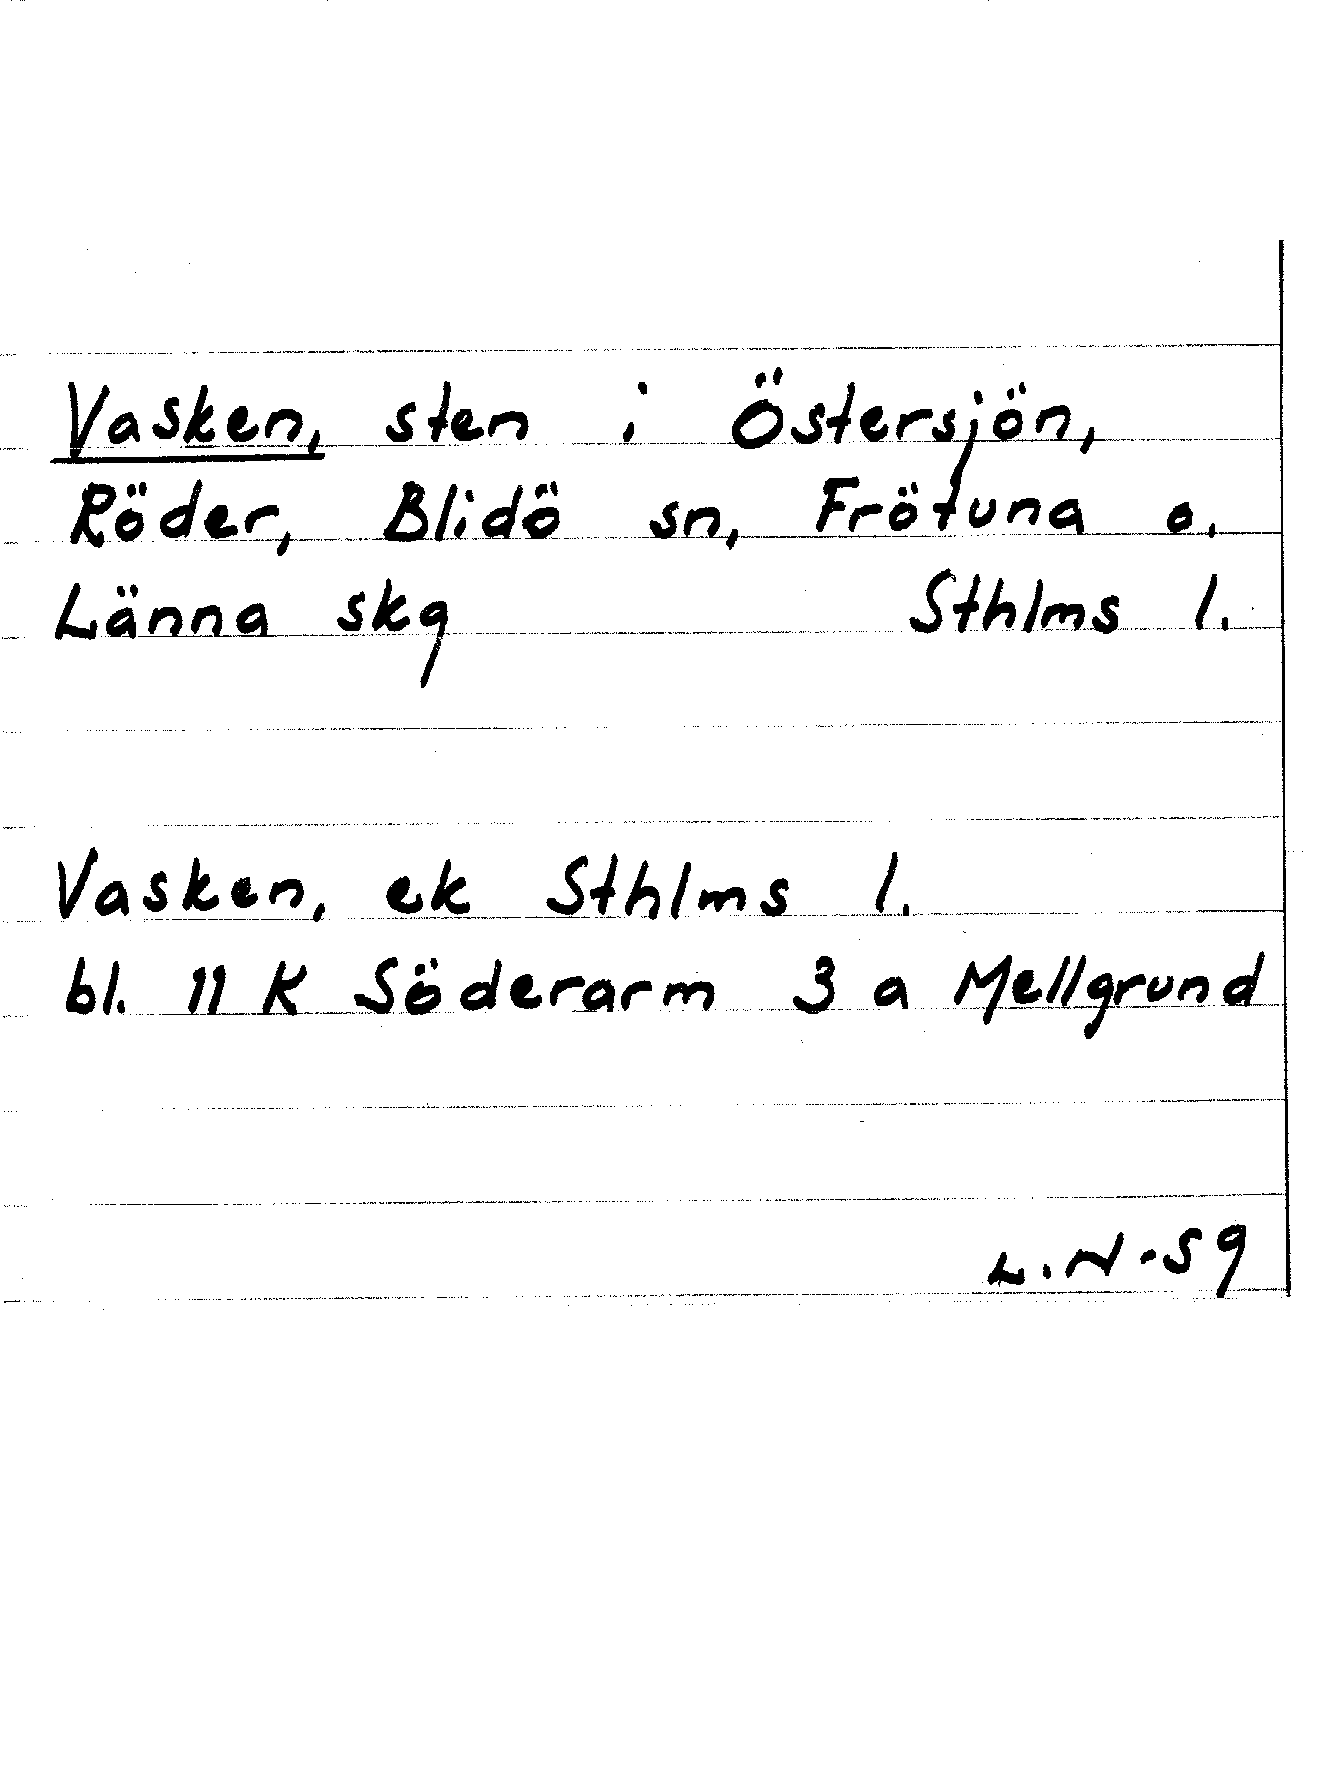 Vasken, sten i Östersjön,
Röder, Blidö sn, Frötuna o.
Länna skg Sthlms l.
Vasken, ek Sthlms l.
bl. 11 K Söderarm 3 a Mellgrund
L.N-59